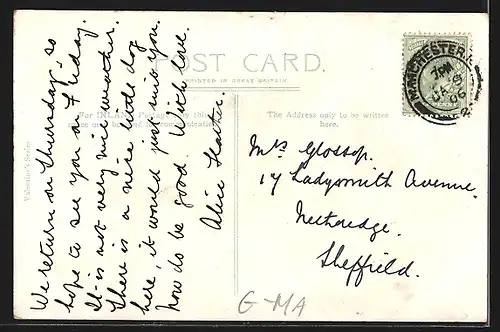 POST CARD.
PRINTED IN GREAT BRITAIN
For INLAND Postage only this
The Address only to be written
here.
Valentine's Series
We return on Thursday, so
hope to see you on Friday.
It is not very nice weather.
There is a nice little dog
here, it would just suit you.
Now do be good. With love.
Alice
MANCHESTER
7 PM
06
Mrs Glossop.
17 Ladysmith Avenue.
Netheredge.
Sheffield.
G-MA